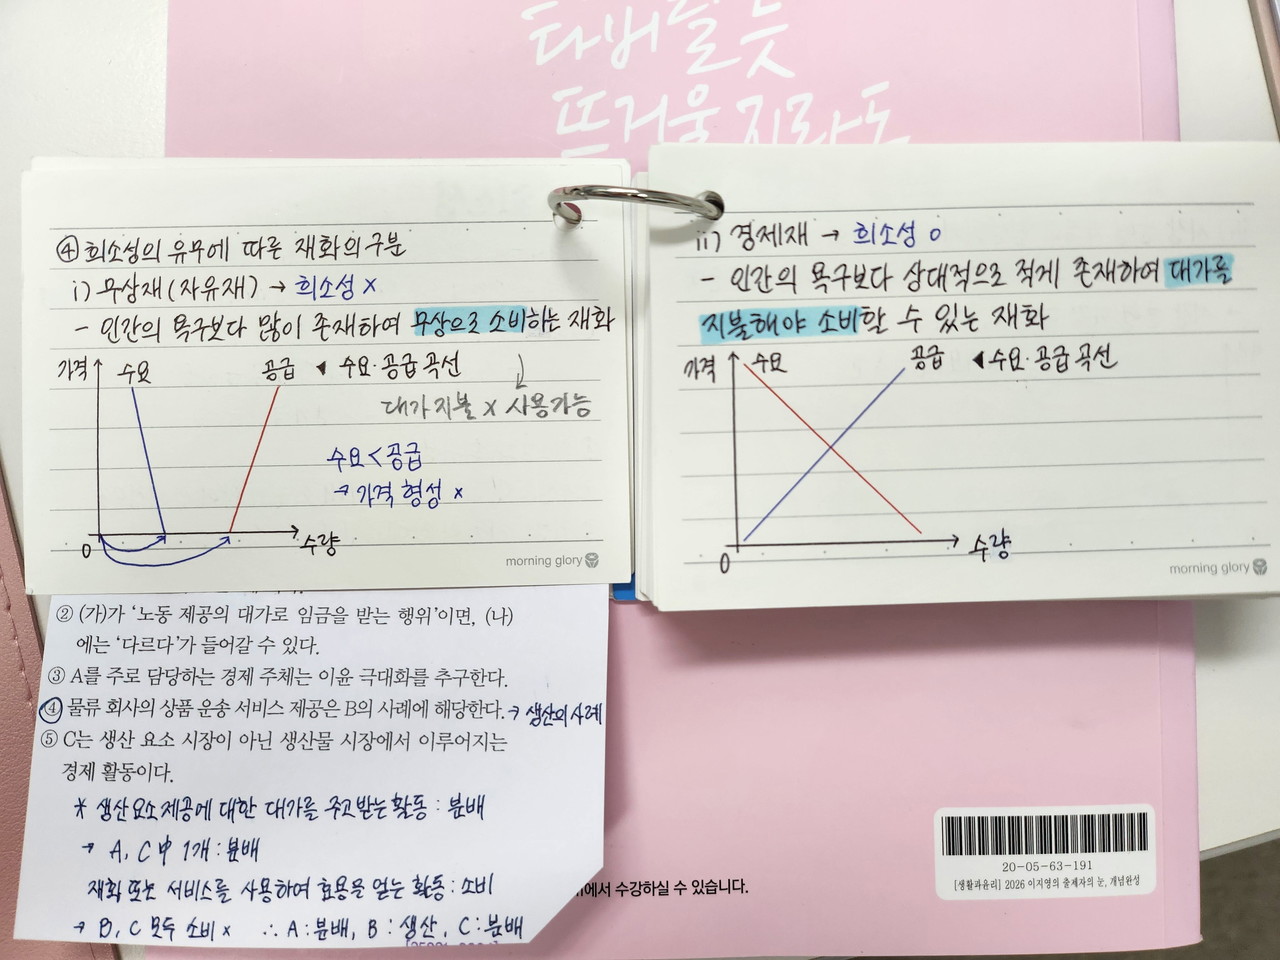 타버릴 듯
뜨거울지라도
④ 희소성의 유무에 따른 재화의 구분
i) 무상재(자유재) → 희소성 x
- 인간의 욕구보다 많이 존재하여 무상으로 소비하는 재화
가격 수요 공급 ◀ 수요·공급 곡선
대가 지불 x 사용가능
수요 < 공급
→ 가격 형성 x
0 수량
morning glory
ii) 경제재 → 희소성 o
- 인간의 욕구보다 상대적으로 적게 존재하여 대가를
지불해야 소비할 수 있는 재화
가격 수요 공급 ◀ 수요·공급 곡선
0 수량
morning glory
② (가)가 ‘노동 제공의 대가로 임금을 받는 행위’이면, (나)
에는 ‘다르다’가 들어갈 수 있다.
③ A를 주로 담당하는 경제 주체는 이윤 극대화를 추구한다.
④ 물류 회사의 상품 운송 서비스 제공은 B의 사례에 해당한다. → 생산의 사례
⑤ C는 생산 요소 시장이 아닌 생산물 시장에서 이루어지는
경제 활동이다.
* 생산요소 제공에 대한 대가를 주고받는 활동 : 분배
→ A, C 中 1개 : 분배
재화 또는 서비스를 사용하여 효용을 얻는 활동 : 소비
→ B, C 모두 소비 x ∴ A : 분배, B : 생산, C : 분배
에서 수강하실 수 있습니다.
20-05-63-191
[생활과윤리] 2026 이지영의 출제자의 눈, 개념완성